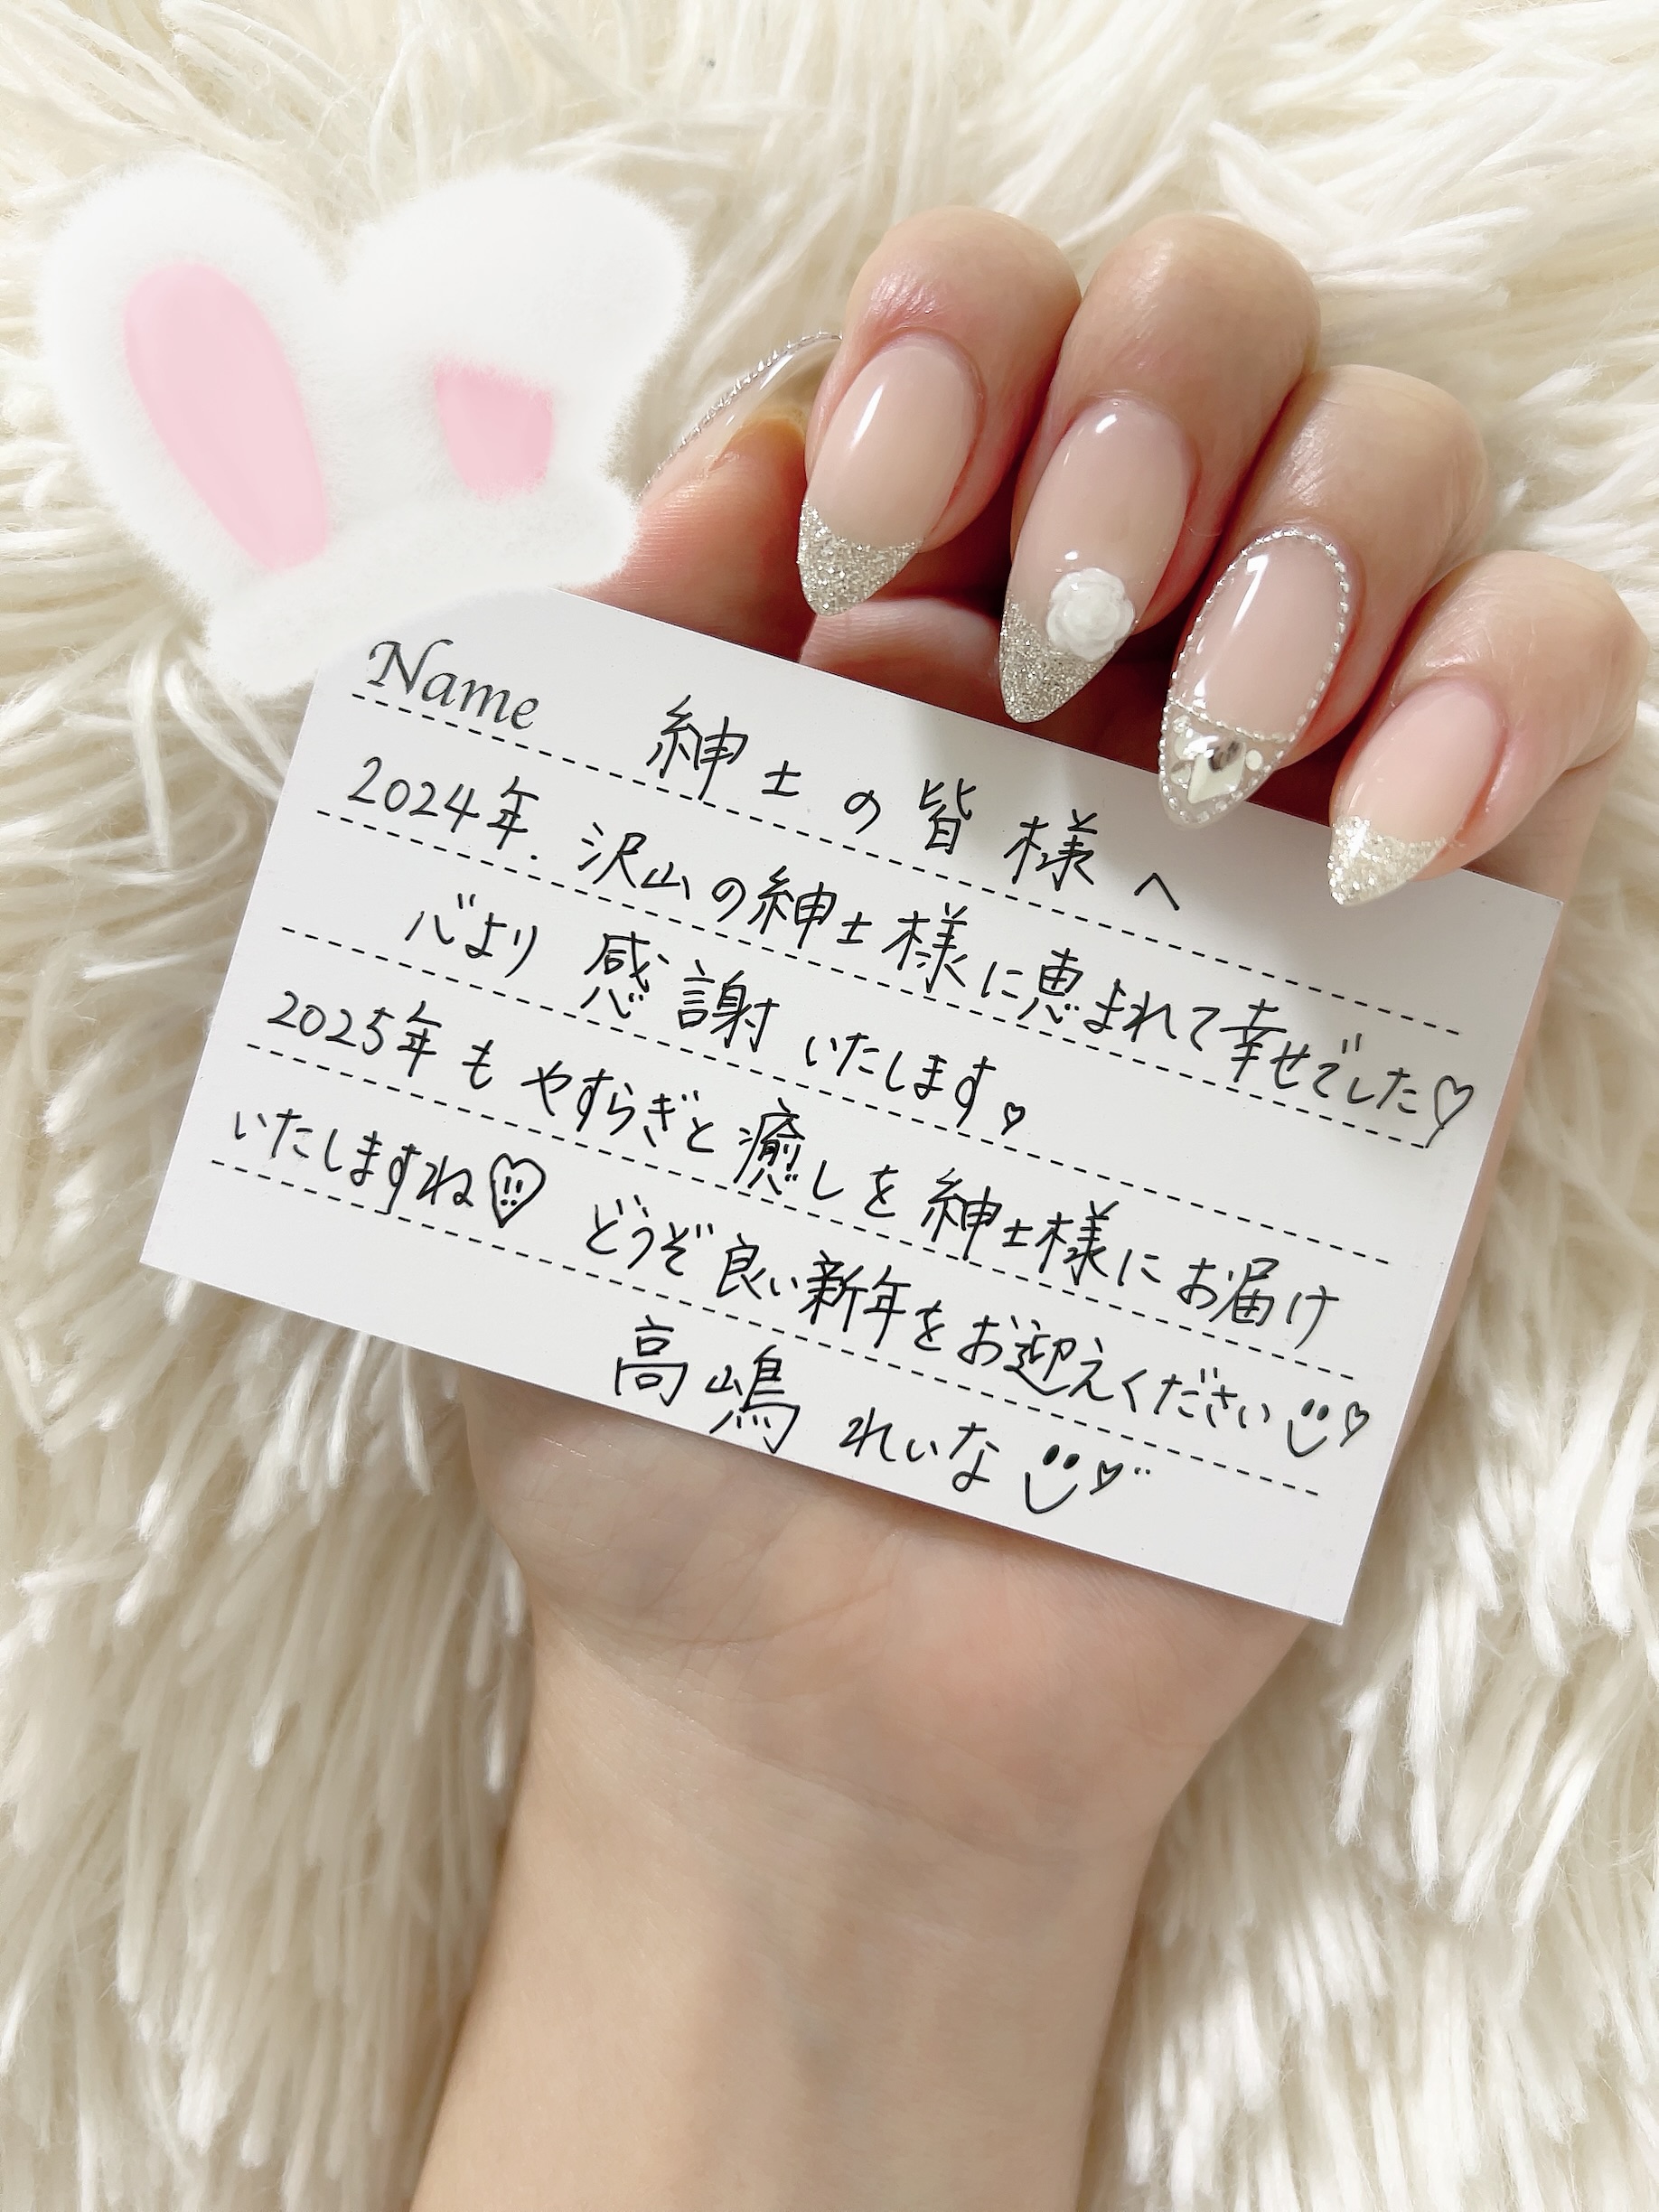 Name 紳士の皆様へ
2024年. 沢山の紳士様に恵まれて幸せでした♡
心より感謝いたします。
2025年もやすらぎと癒しを紳士様にお届け
いたしますね♡ どうぞ良い新年をお迎えください
高嶋れいな